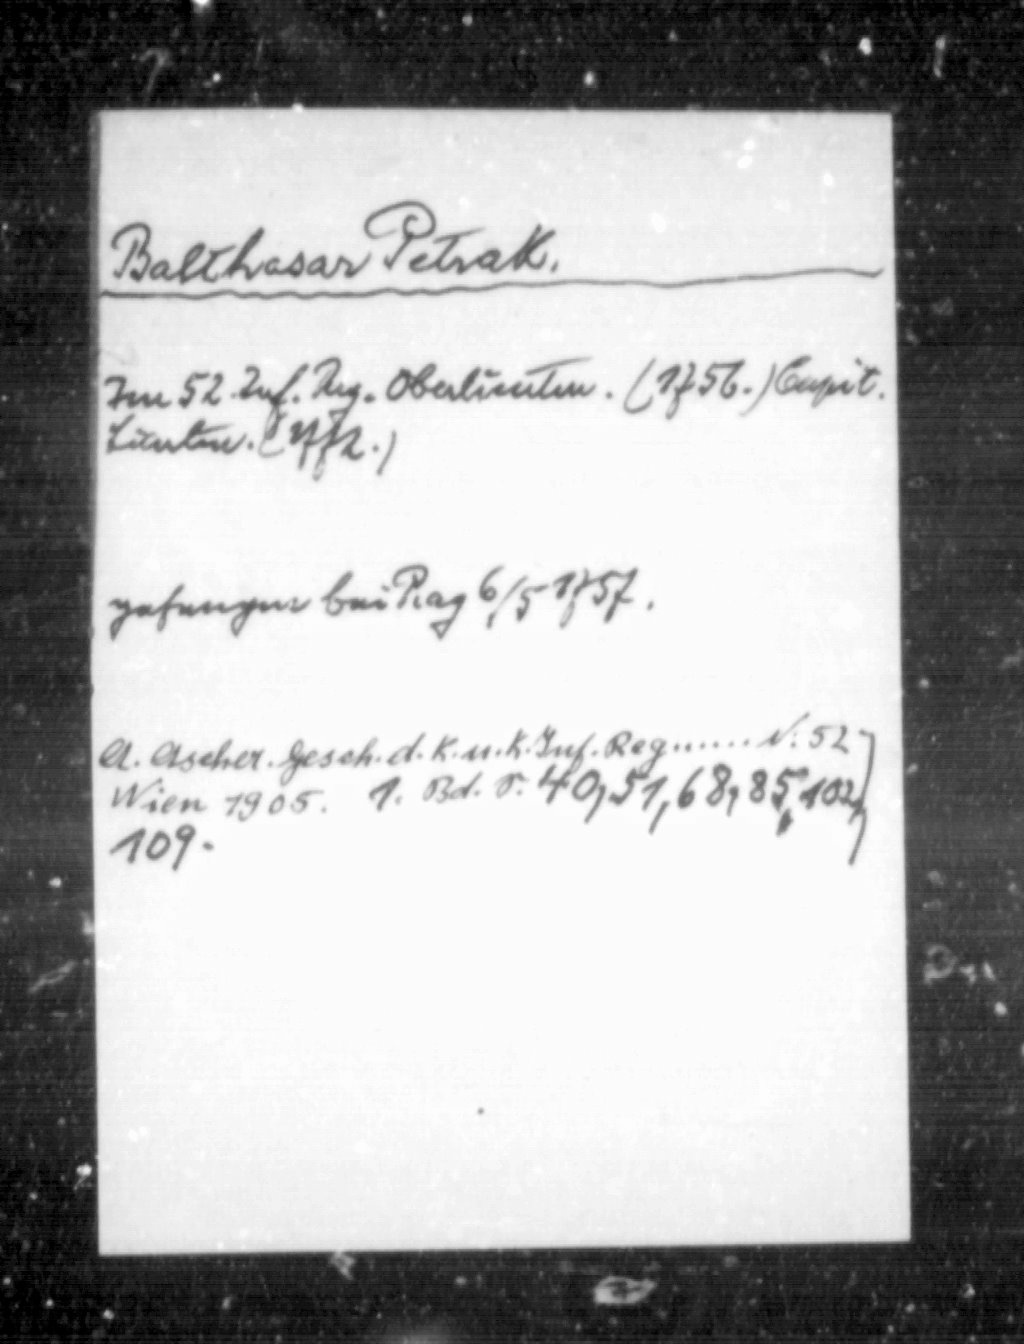 Balthasar Petrak.
Im 52 Inf. Reg. Oberlieuten. (1756.) Capit.
Lieuten. (1772.)
gefangen bei Prag 6/5 1757.
A. Ascher. Gesch. d. K. u. K. Inf. Reg...... N. 52
Wien 1905. 1. Bd. S. 40, 51, 68, 85, 102,
109.